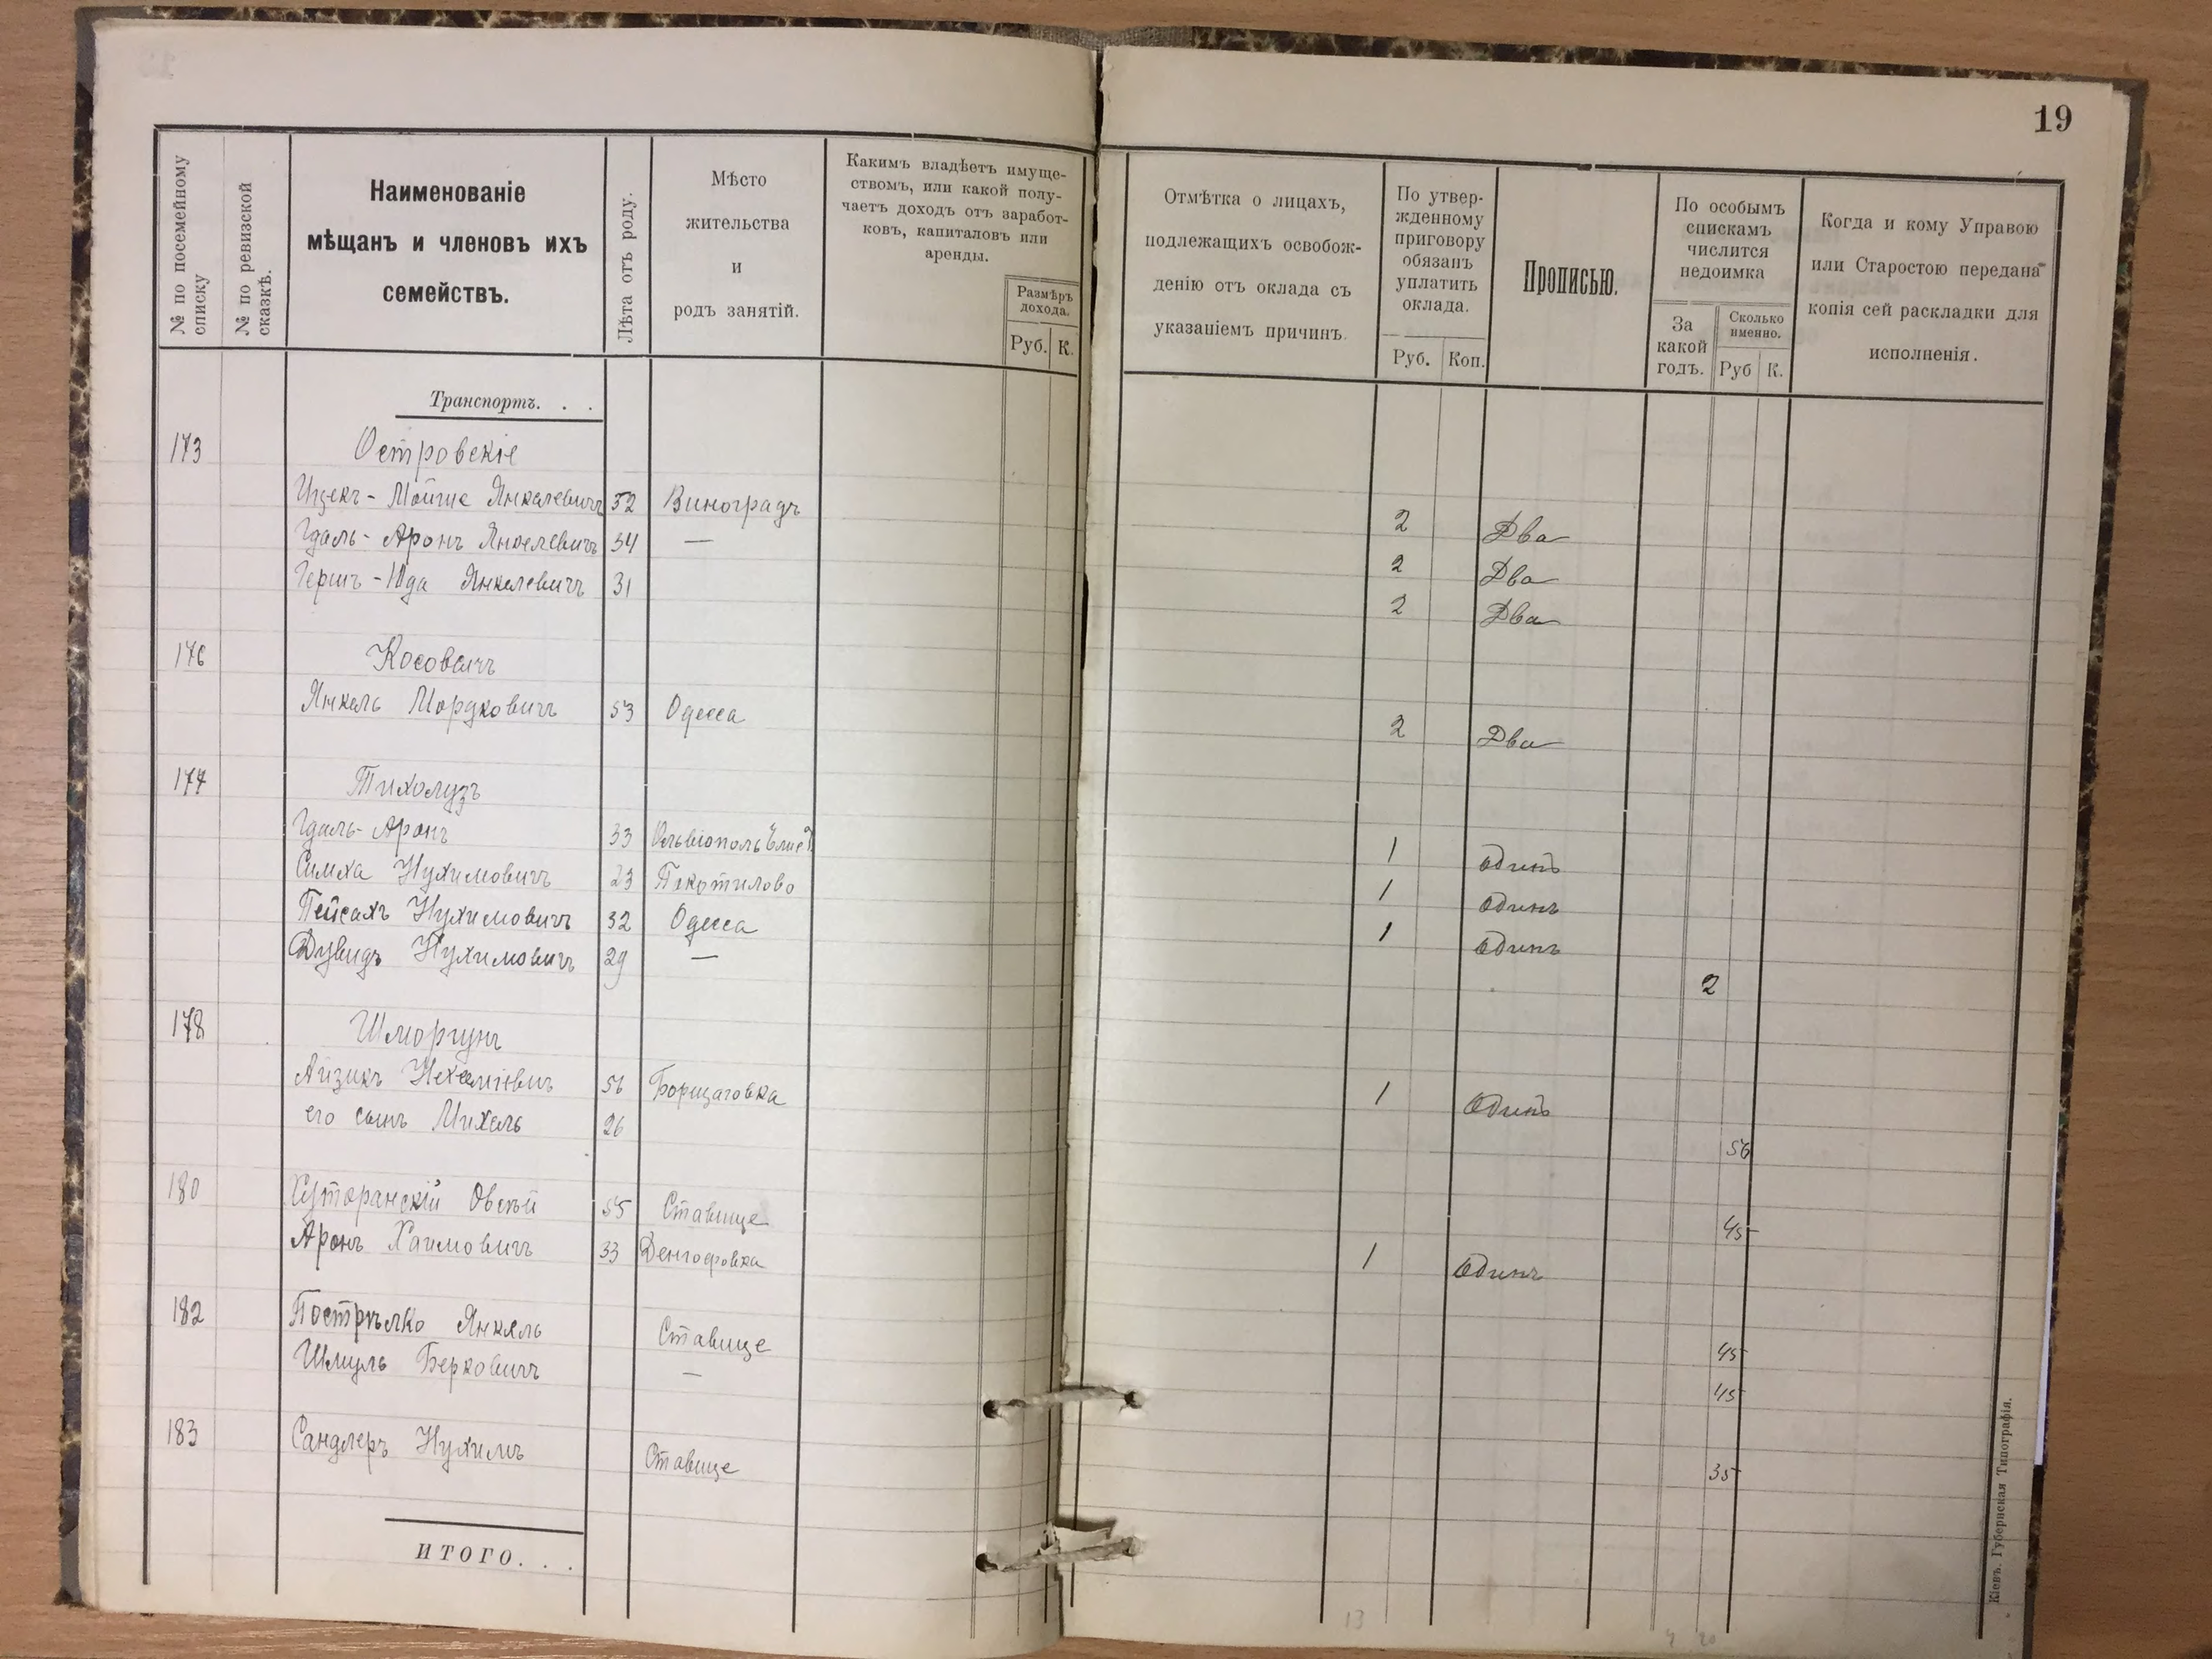 19
№ по посемейному списку
№ по ревизской сказкѣ.
Наименованіе
мѣщанъ и членовъ ихъ
семействъ.
Лѣта отъ роду.
Мѣсто
жительства
и
родъ занятій.
Какимъ владѣетъ имуще-
ствомъ, или какой полу-
чаетъ доходъ отъ заработ-
ковъ, капиталовъ или
аренды.
Размѣръ
дохода.
Руб. К.
Отмѣтка о лицахъ,
подлежащихъ освобож-
денію отъ оклада съ
указаніемъ причинъ.
По утвер-
жденному
приговору
обязанъ
уплатить
оклада.
Руб. Коп.
Прописью.
По особымъ
спискамъ
числится
недоимка
За
какой
годъ.
Сколько
именно.
Руб К.
Когда и кому Управою
или Старостою передана
копія сей раскладки для
исполненія.
Транспортъ. . .
173 Островскіе
Ицекъ-Мойше Янкелевичъ 52 Виноградъ 2 Два
Гдаль-Аронъ Янкелевичъ 34 — 2 Два
Гершъ-Юда Янкелевичъ 31 2 Два
176 Косовичъ
Янкель Мордковичъ 53 Одесса 2 Два
177 Тихолузъ
Гдаль-Аронъ 33 Ольвіополь 1 одинъ
Симха Нухимовичъ 23 Пекотилово 1 одинъ
Пейсахъ Нухимовичъ 32 Одесса 1 одинъ
Дувидъ Нухимовичъ 29 — 2
178 Шморгунъ
Айзикъ Нехеміевичъ 56 Борщаговка 1 Одинъ
его сынъ Михель 26 56
180 Хуторанскій Овсѣй 55 Ставище 45
Аронъ Хаимовичъ 33 Денгофовка 1 Одинъ
182 Пострѣлко Янкель Ставище 45
Шмуль Берковичъ — 45
183 Сандлеръ Нухимъ Ставище 35
ИТОГО. . .
13 4 20
Кіевъ. Губернская Типографія.